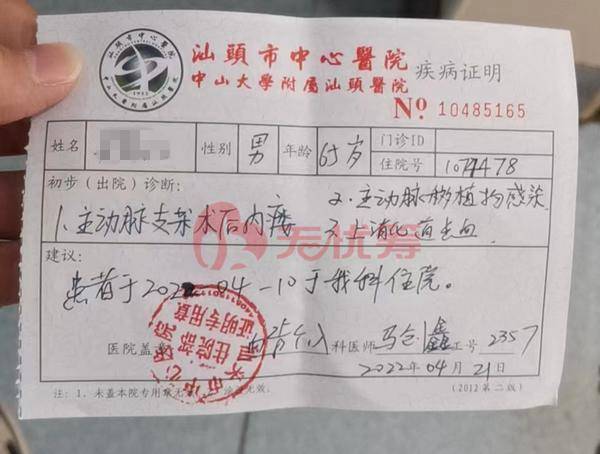 汕頭市中心醫院
中山大學附属汕頭醫院
疾病证明
No 10485165
姓名 性别 男 年龄 65岁 门诊ID
住院号 1074478
初步(出院)诊断:
1.主动脉支架术后内瘘
2.主动脉移植物感染
3.上消化道出血
无忧筹
建议:
患者于2022-04-10于我科住院。
医院盖章 科医师 马 鑫 证号 2357
住院部
证明专用章
2022年04月21日
注:1、未盖本院专用章无效 涂改无效。 (2012第二版)